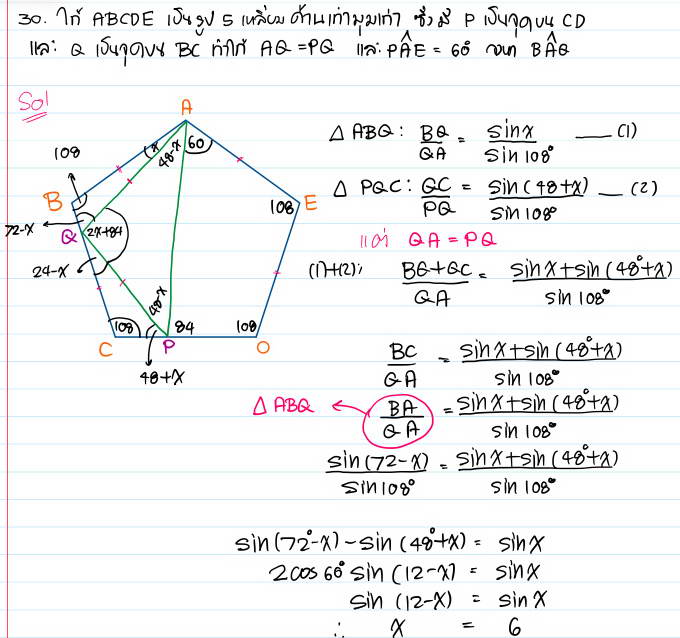 30. ให้ ABCDE เป็นรูป 5 เหลี่ยม ด้านเท่ามุมเท่า ซึ่งมี P เป็นจุดบน CD
และ Q เป็นจุดบน BC ทำให้ AQ = PQ และ PÂE = 60° จงหา BÂQ
Sol
A
x
48-x
60
108
B
E
108
72-x
Q
2x+84
24-x
48-x
108
84
108
C
P
O
48+x
△ ABQ : BQ/QA = sinx/sin 108° —— (1)
△ PQC : QC/PQ = sin(48+x)/sin 108° — (2)
แต่ QA = PQ
(1)+(2); BQ+QC/QA = sinx+sin(48°+x)/sin 108°
BC/QA = sinx+sin(48°+x)/sin 108°
△ ABQ ← BA/QA = sinx+sin(48°+x)/sin 108°
sin(72-x)/sin108° = sinx+sin(48°+x)/sin 108°
sin(72°-x) - sin(48°+x) = sinx
2cos60° sin(12-x) = sinx
sin(12-x) = sinx
∴ x = 6